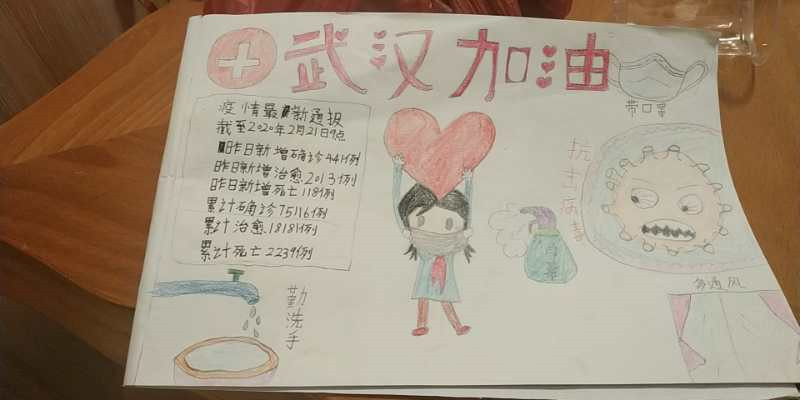 武汉加油
疫情最新通报
截至2020年2月21日9点
昨日新增确诊441例
昨日新增治愈2013例
昨日新增死亡118例
累计确诊75116例
累计治愈18181例
累计死亡2239例
带口罩
勤洗手
多通风